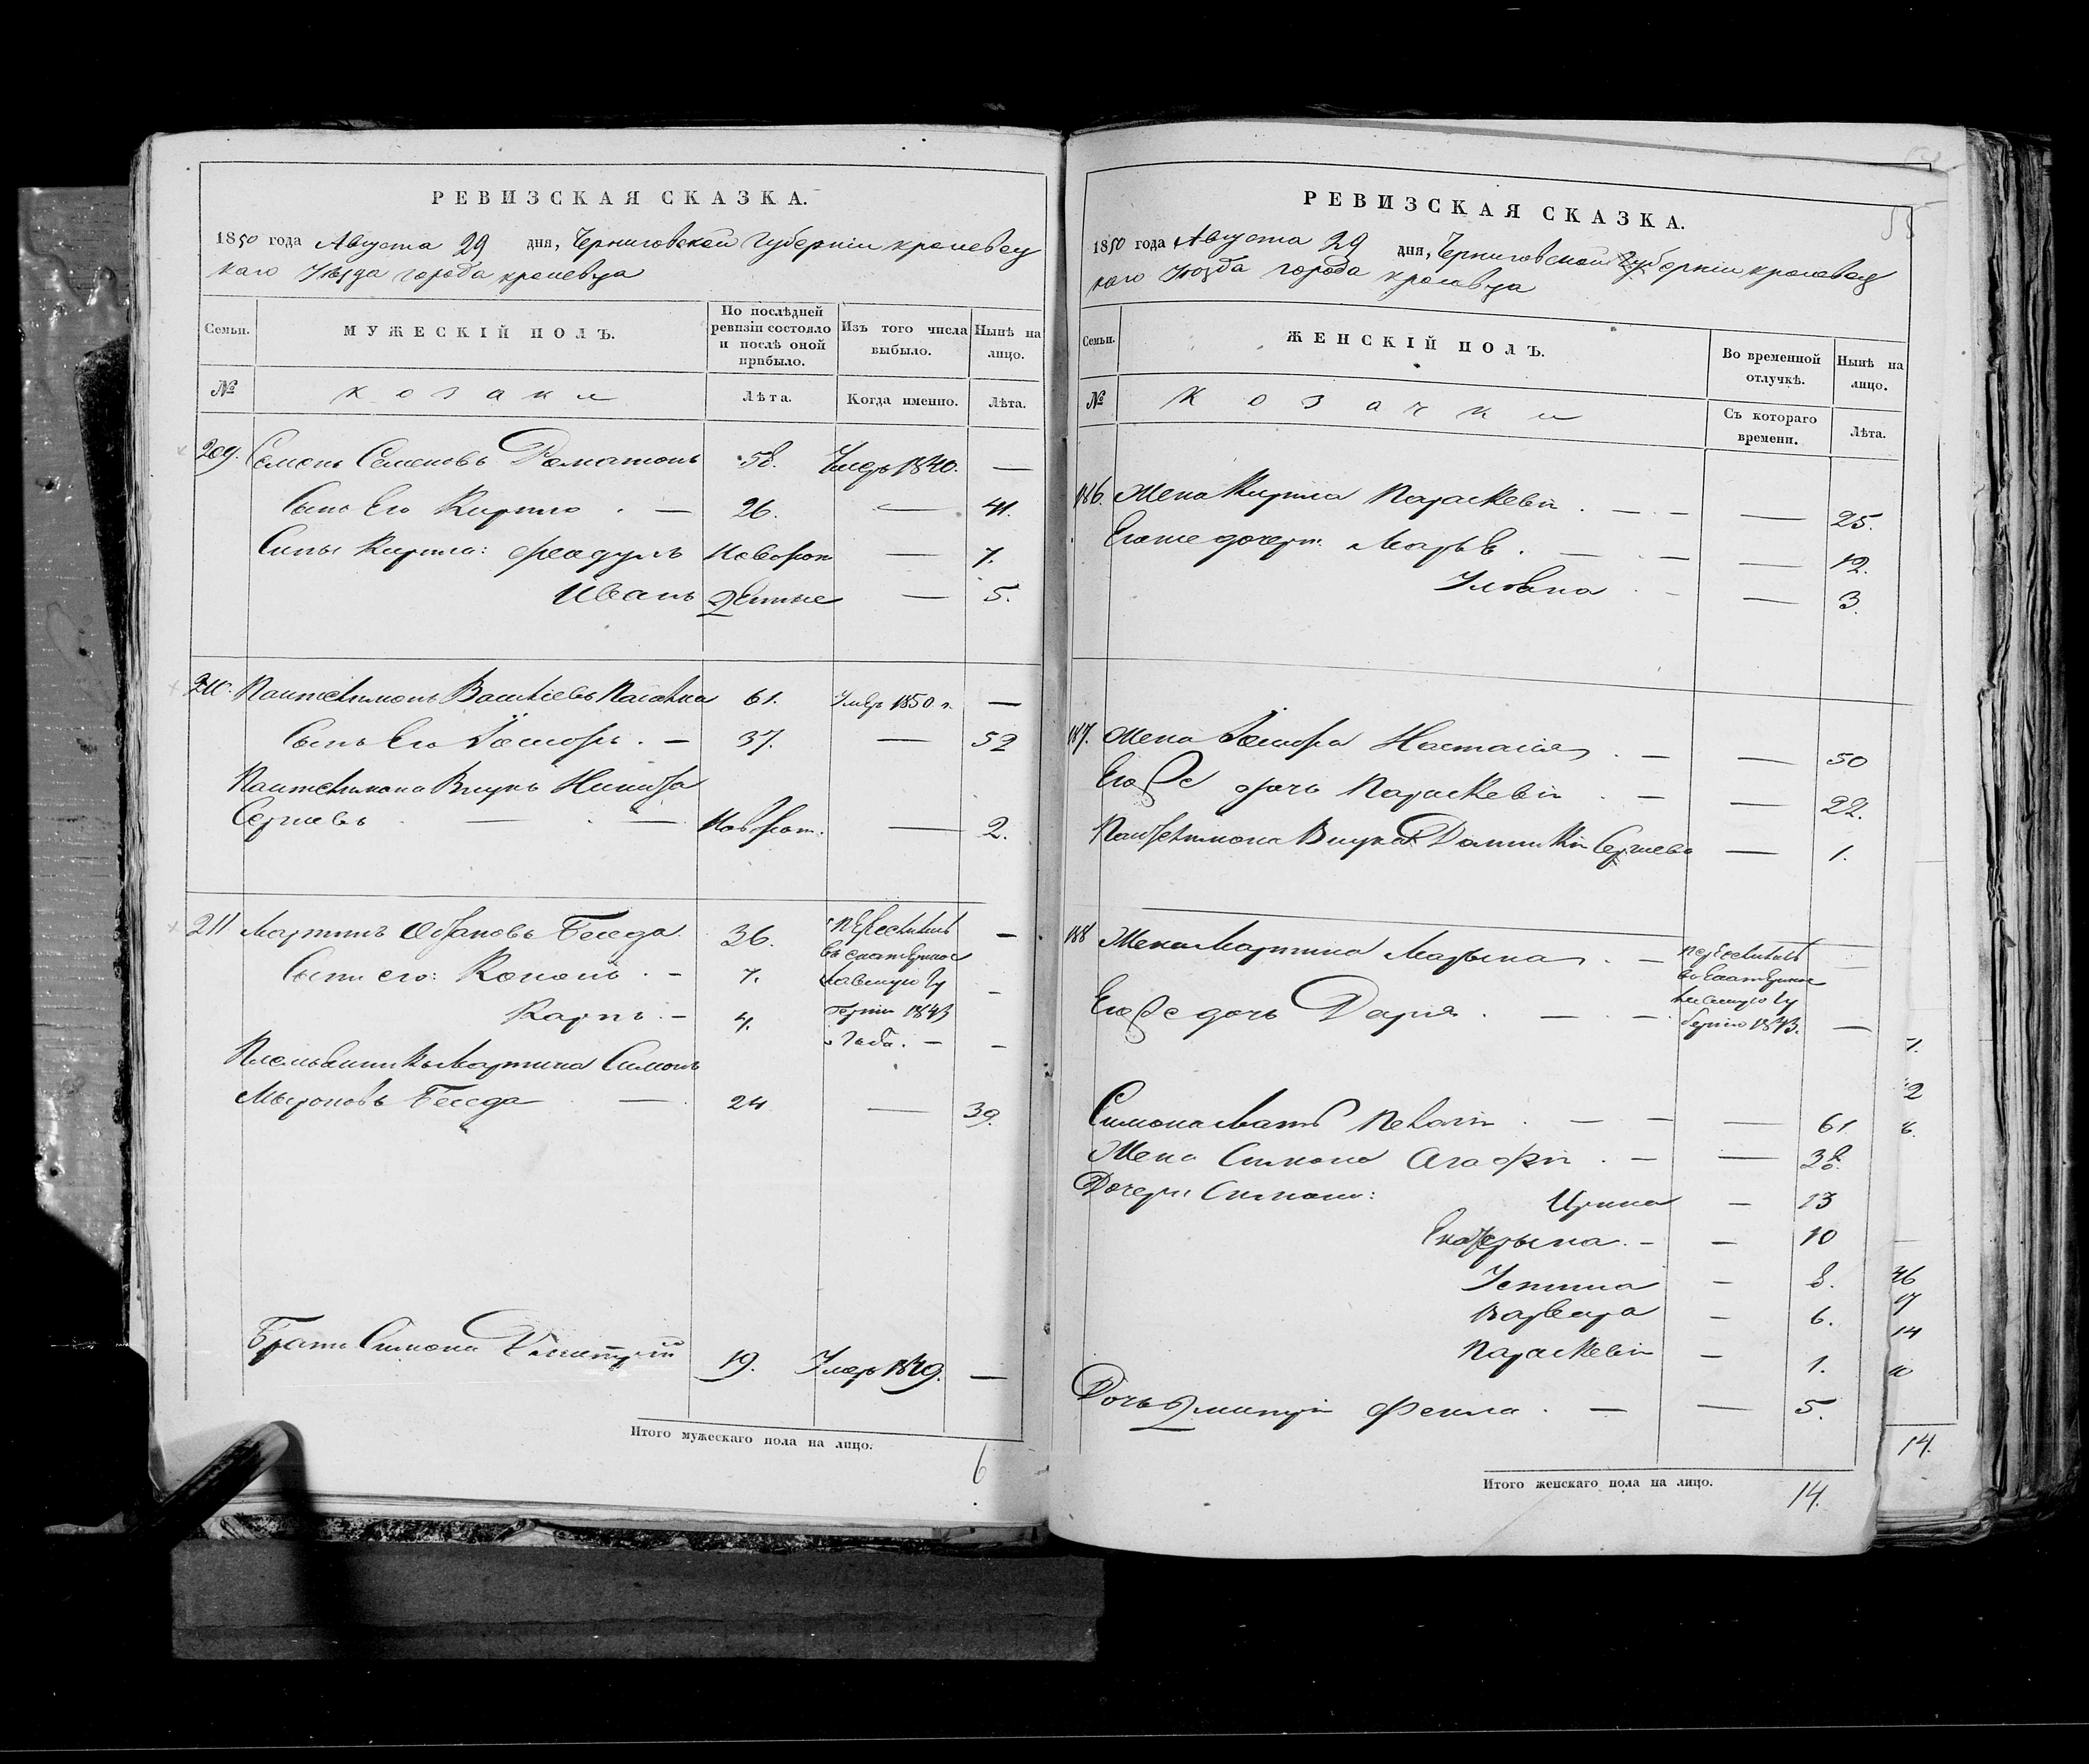 РЕВИЗСКАЯ СКАЗКА.
1850 года Августа 29 дня, Черниговской Губерніи кролевец
каго Уѣзда города кролевца
Семьи. МУЖЕСКІЙ ПОЛЪ. По послѣдней ревизіи состояло и послѣ оной прибыло. Изъ того числа выбыло. Нынѣ на лицо.
№ козаки Лѣта. Когда именно. Лѣта.
209. Семенъ Семеновъ 58. Умеръ 1840. —
Сынъ Его Кирило . — 26. — 41.
Сины Кирила: Феодулъ Новорож — 7.
Иванъ денные — 5.
210. Пантелимонъ Василіевъ 61. Умеръ 1850 г. —
Сынъ Его . — 37. — 52
Пантелимона Внукъ Никифа
Сергіевъ . — . — Новорож. — 2.
211 Мартинъ Беседа 36. переселились —
Сыни его: Кононъ . — 7. въ екатерино
славскую гу —
Карпъ . — 4. берніи 1843
года . — —
Племьянникъ Мартина Симонъ
Мыроновъ Беседа — 24 — 39.
Братъ Симона Дмитрій 19. Умеръ 1849. —
Итого мужескаго пола на лицо. 6
РЕВИЗСКАЯ СКАЗКА.
55
1850 года Августа 29 дня, Черниговской Губерніи кролевец
каго Уѣзда города кролевца
Семьи. ЖЕНСКІЙ ПОЛЪ. Во временной отлучкѣ. Нынѣ на лицо.
№ Козачки Съ котораго времени. Лѣта.
186. Жена Кирила Параскевія . — — — 25.
Егоже дочери Марья . — — — 12.
Ульяна . — — 3.
187. Жена Настасія . — — 50
Егоже дочь Параскевія . — — 22.
Пантелимона Внука Домникія Сергіева — 1.
188 Жена Мартина Марына . — переселились —
въ Екатерино
славскую гу
Егоже дочь Дарія . — — берніи 1843. —
Симона Мать Пелагія . — — — 61
Жена Симона Агафія . — — 38.
Дочери Симона: Ирина — 13
Екатерына . — — 10
Устина — 8.
Варвара — 6.
Параскевія — 1.
Дочь Дмитрія Фекла . — — 5.
Итого женскаго пола на лицо. 14.
1.
12
8.
46
17
14
10
14.